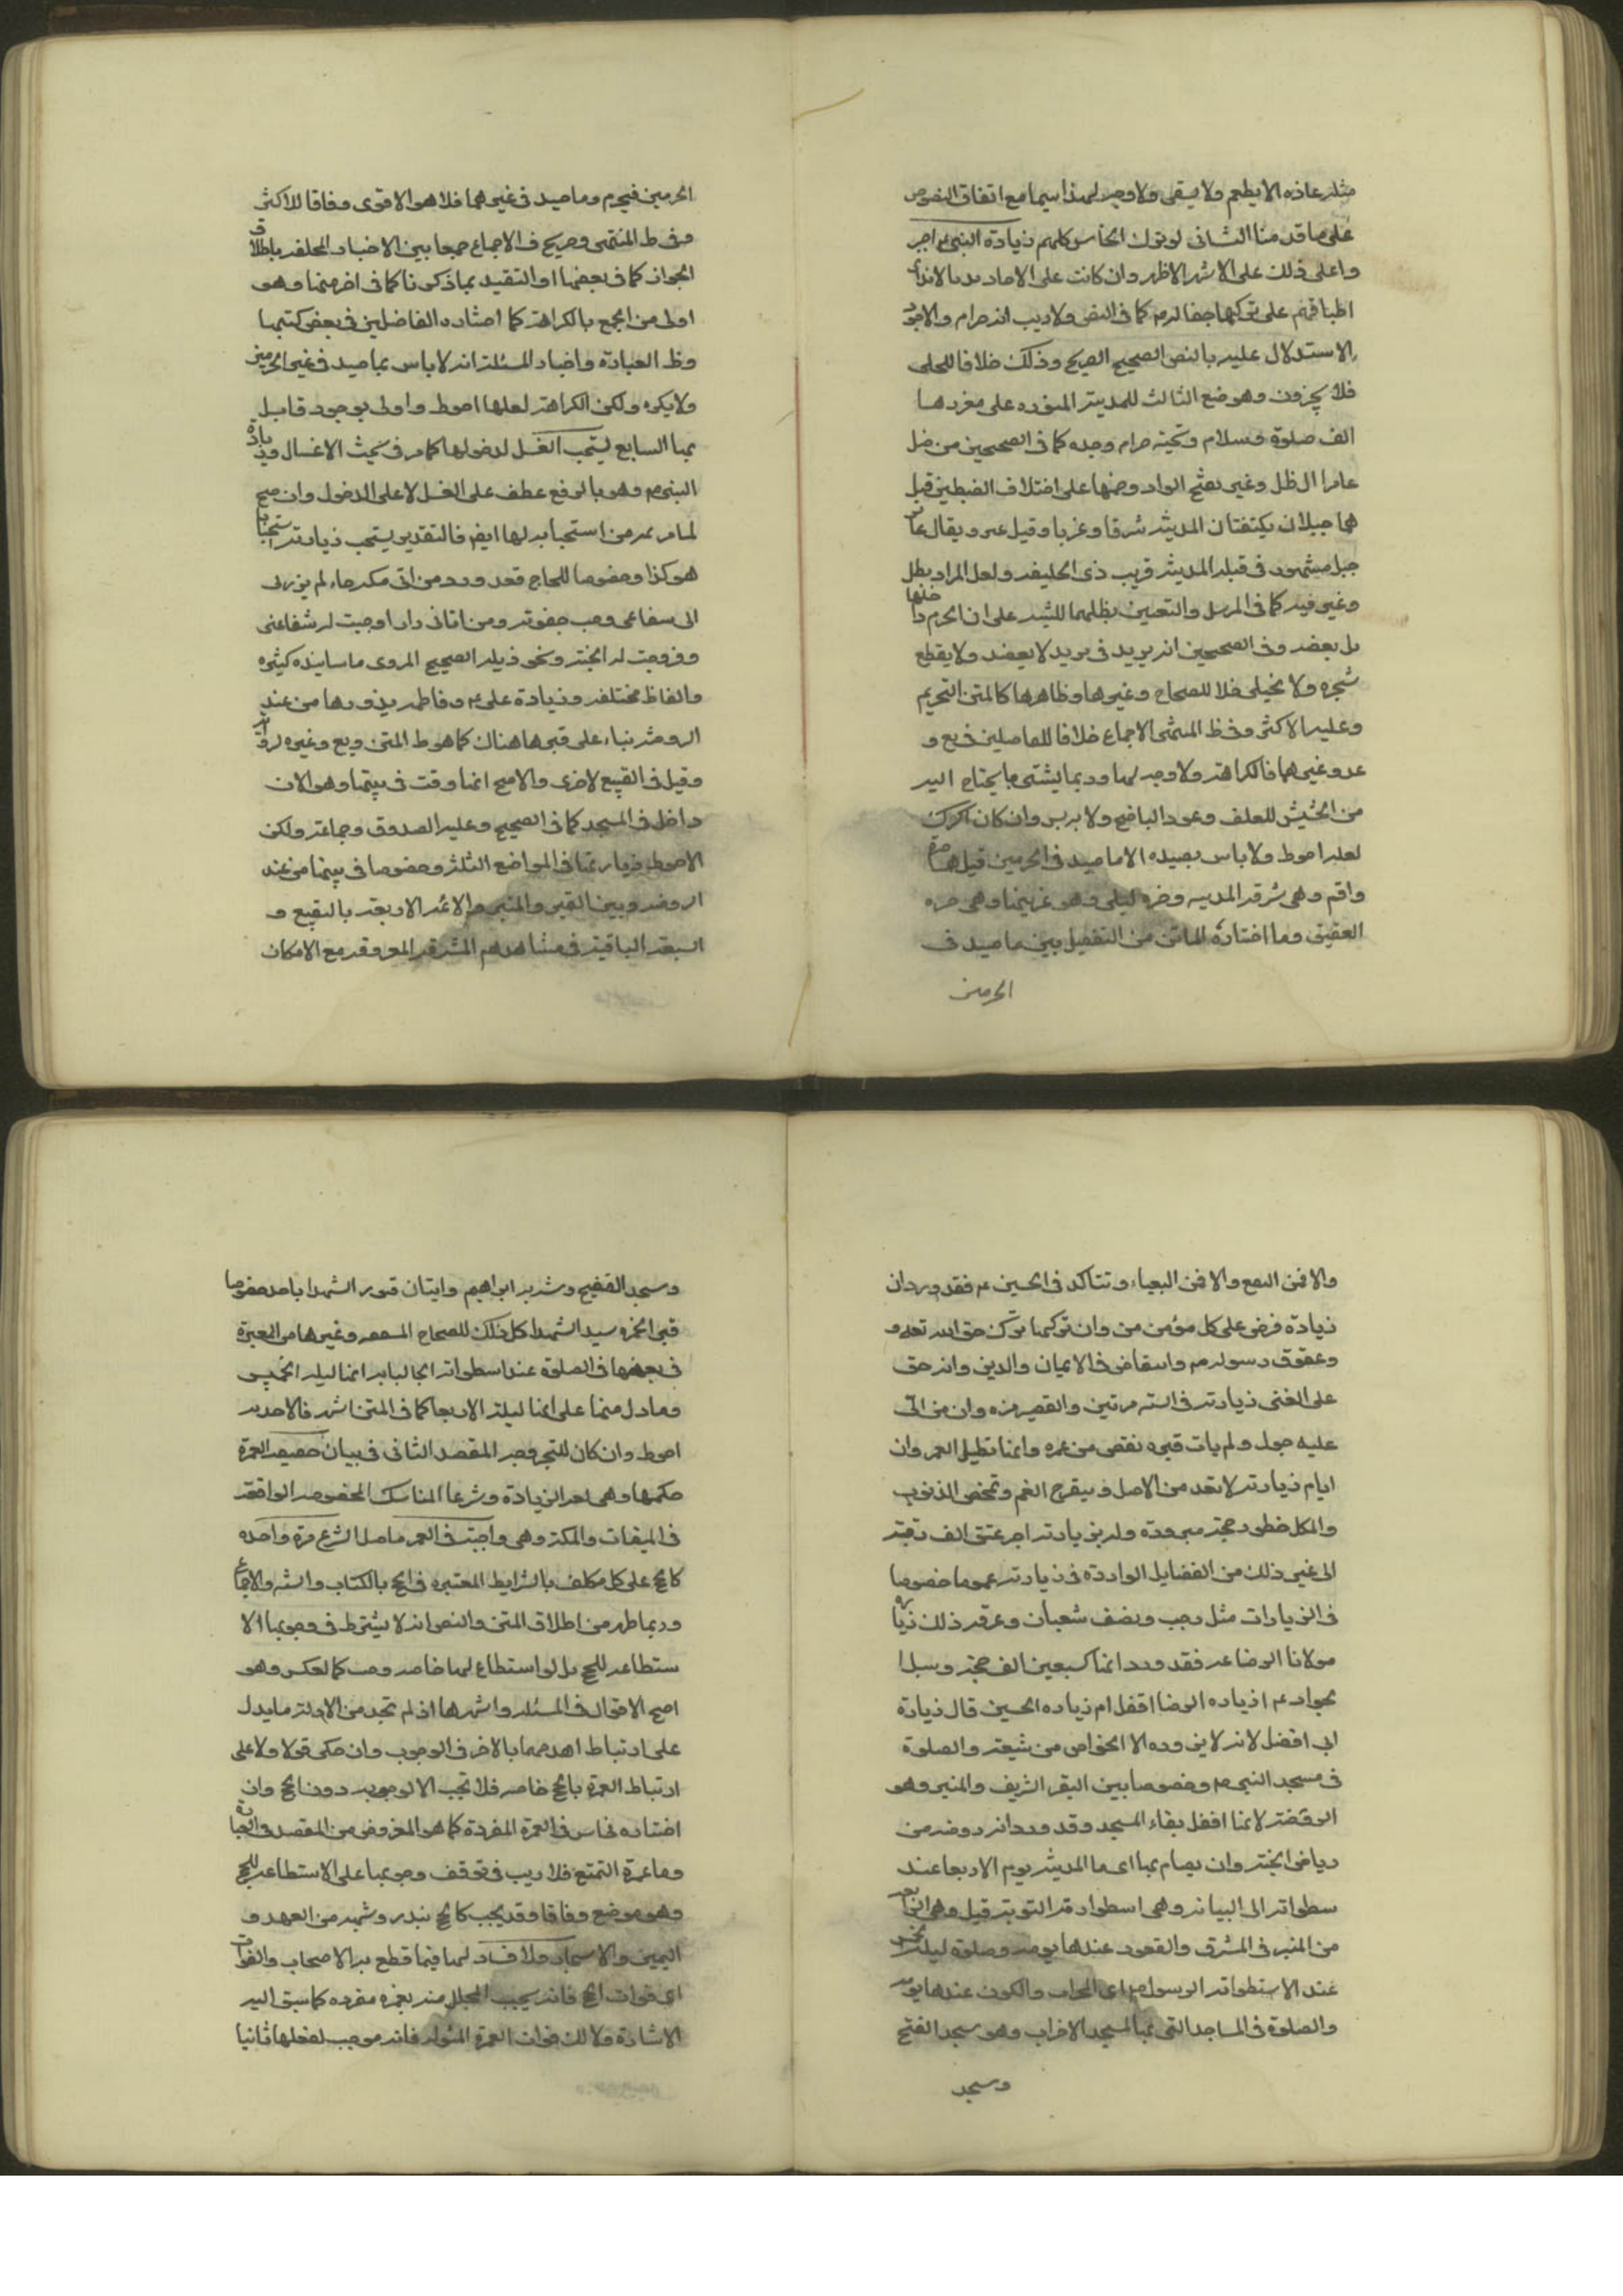 مثله عاذه الا يطعم ولا يسقى ولا وجه لهذا سيما مع اتفاق النصوص
على ما قدمنا الثانى لو ترك الحاس كلهم زيادة النبى ص اجبر
واعلى ذلك على الاشهر الاظهر وان كانت على الاحاد ندبا لانه
اطباقهم على تركها جفا له ص كما فى النص ولا ريب انه حرام والاجود
الاستدلال عليه بالنص الصحيح الصريح وذلك خلافا للحلى
فلا يجزون وهو ضع الثالث للمدينة المنوره على مغردها
الف صلوة وسلام وتحيته حرام وحده كما فى الصحيحين من ظل
عاير الى ظل وغير بفتح الواو وضمها على اختلاف الضبطين قيل
هما جبلان يكتنفان المدينة شرقا وغربا وقيل عير ويقال عاير
جبل مشهود فى قبلة المدينة قريب ذى الحليفه ولعل المراد بظل
وعير فيه كما فى المرسل والتعبير بظلهما للتنبيه على ان الحرم داخلها
بل بعضه وفى الصحيحين انه بريد فى بريد لا يعضد ولا يقطع
شجره ولا يختلى خلا للصحاح وغيرها وظاهرها كالمتن التحريم
وعليه الاكثر وفى ظ المنتهى الاجماع خلافا للفاضلين فى يع و
عد وغيرهما فالكراهة ولا وجه لها وربما يستثنى ما يحتاج اليه
من الحشيش للعلف وعود الناضح ولا بربس وان كان الترك
لعله احوط ولا باس بصيده الا ما صيد فى الحرمين قيل هما حرة
واقم وهى شرقه المدينه وحره ليلى وهو غربيتها وهى حره
العقيق وما اختاره الماتن من التفصيل بين ما صيد فى
الحرمين
الحرمين فيحرم وما صيد فى غيرهما فلا هو الاقوى وفاقا للاكثر
وفى ط المنتهى وصريح ف الاجماع جمعا بين الاخبار المختلفه باطلاق
الجواز كما فى بعضها او التقييد بما ذكرنا كما فى اخر منها وهو
اولى من الجمع بالكراهة كما اختاره الفاضلين فى بعض كتبهما
وظ العبارة واخبار المسئلة انه لا باس بما صيد فى غير الحرمين
ولا يكره ولكن الكراهة لعلها احوط واولى بوجود قايل
بها السابع يستحب الغسل لدخولها كما مر فى بحث الاغسال وزيارة
النبى ص وهو بالرفع عطف على الغسل لا على الدخول وان صح
لما مر ثمه من استحبابه لها ايض فالتقدير يستحب زيارته استحبابا
هو كذا وخصوصا للحاج فعد ورد من اتى مكه حاجا ولم يزرنى
الى جفوته ومن اتانى زايرا وجبت له شفاعتى
ووجبت له الجنة ونحو ذيله الصحيح المروى باسانيد كثيره
والفاظ مختلفه وزيادة على ع وفاطمه يزورها من عند
الروضه بناء على قبرها هناك كما هو ط المتن ويع وغيره لرواية
وقيل فى البقيع لاخرى والاصح انها وقت فى بيتها وهو الان
داخل فى المسجد كما فى الصحيح وعليه الصدوق وجماعة ولكن
الاحوط زيارتها فى المواضع الثلثة وخصوصا فى بيتها من عند
الروضه وبين القبر والمنبر والائمه الاربعة بالبقيع و
السبعة الباقية فى مشاهدهم المشرفه الموفقه مع الامكان
والا فمن البقع والا فمن البعباء وتتاكد فى الحسين ع فقد ورد ان
زيادة فرض على كل مؤمن من وان تركها ترك حق الله تعه و
وعقوق رسوله ص وانتقاص فى الايمان والدين وانه حق
على الغنى زيارته فى السنه مرتين والفقير مره وان من اتى
عليه حول ولم يات قبره نقص من عمره وانها تطيل العمر وان
ايام زيارته لا تعد من الاجل وتفرج الغم وتمحص الذنوب
والكل خطى وحجة مبرورة وله بزيادته اجر عتق الف رقبة
الى غير ذلك من الفضايل الواردة فى زيارته عموما خصوصا
فى الزيارات مثل رجب ونصف شعبان وعرفه ذلك زيارة
مولانا الرضا ع فقد ورد انها كسبعين الف حجة وسئل ا
لجواد ع ازياده الرضا افضل ام زياده الحسين قال زيادة
ابى افضل لانه لا يزوره الا الخواص من شيعته والصلوة
فى مسجد النبى ص وخصوصا بين القبر الشريف والمنبر وهو
الروضة لانها افضل بقاع المسجد وقد ورد انه روضه من
رياض الجنة وان يصام بها اى بالمدينه يوم الاربعا عند
سطوانة ابى البابه وهى اسطوانة التوبة قيل وهى الرابعه
من المنبر فى المشرق والقعود عندها يومه وصلوة ليلة الخميس
عند الاسطوانه الرسول ص اى المحراب والكون عندها يومه
والصلوة فى المساجد التى بها المسجد الاحزاب وهو مسجد الفتح
ومسجد
ومسجد الفضيح ومشربه ابراهيم واتيان قبور الشهدا باحد خصوصا
قبر الحمزه سيد الشهدا كل ذلك للصحاح وغيرها من المعتبرة
فى بعضها فى الصلوة عند اسطوانه ابى لبابه انها ليله الخميس
وما دل منها على انها ليلة الاربعا كما فى المتن اشهر فالاخذ به
احوط وان كان للتخيير وجه المقصد الثانى فى بيان حقيقه العمرة
حكمها وهى لغه الزيادة وشرعا المناسك المخصوصه الواقعة
فى الميقات والمكة وهى واجبة فى العمر باصل الشرع مرة واحده
كالحج على كل مكلف بالشرايط المعتبره فى الحج بالكتاب والسنه والاجماع
وربما ظهر من اطلاق المتن والنص انه لا يشترط فى وجوبها الا
ستطاعه للحج بل لو استطاع لها خاصه وجبت كالعكس وهو
اصح الاقوال فى المسئله واشهرها اذ لم نجد من الادله ما يدل
على ارتباط احدهما بالاخر فى الوجوب وان حكى قولا ولا على
ارتباط العمرة بالحج خاصه فلا تجب الا لوجوبه دون الحج وان
اختاره فى س فى العمرة المفردة كما هو المفروض من المقصد والعبارة
وما عمرة التمتع فلا ريب فى توقف وجوبها على الاستطاعه للحج
وهو موضع وفاقا وقد يجب كالحج بنذر وشبهه من العهد و
اليمين والاستيجار والافساد لها فيما قطع به الاصحاب والفوات
اى فوات الحج فانه يجب التحلل منه بعمرة مفرده كما سبق اليه
الاشارة ولا لك فوات العمرة فانه موجب لفعلها ثانيا